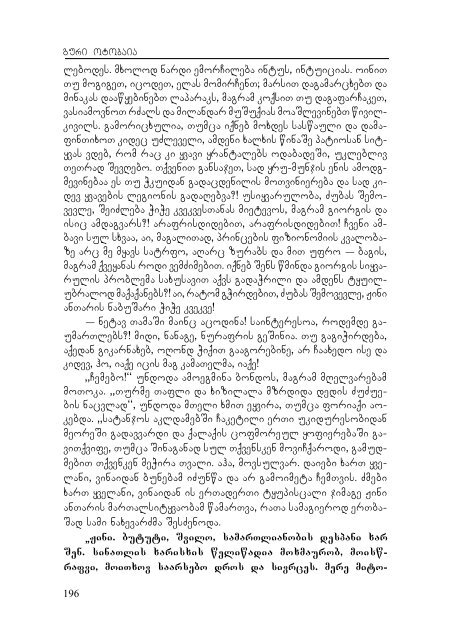 გური ოტობაია
ლებოდეს. მხოლოდ ნარდი ემორჩილება ინტუს, ინტუიციას. ოინით
თუ მოგიგეთ, იცოდეთ, ელას მომირჩენთ; მარსით დაგამარცხებთ და
მინაკას დააწყებინებთ ლაპარაკს, მაგრამ კოქსით თუ დაგაფარჩაკეთ,
ვასიამოვნოთ რძალს და მილანდარ მუშუქიას მოაშლევინებთ წივილ-
კივილს. გამორიცხულია, თუმცა იქნებ მოხდეს სასწაული და დამა-
ფინთიხოთ კიდეც უძლეველი, ამდენი ხალხის წინაშე პატიოსან სიტ-
ყვას ვდებ, რომ რაც კი ყავივ ყრანტალებს ოდაბადეში, უკლებლივ
თეთრად შევღებო. თქვენით განსაჯეთ, სად ყრუ-მუნჯის ენის ამოდგ-
მევინებაა ეს თუ ჭკუიდან გადაცდენილის მოთვინიერება და სად კი-
დევ ყვავების ლეგიონის გადაღებვა?! უსიყვარულობა, ძუბას შემო-
ვევლე, შეიძლება ჭიჭე კვეკვესთანას მიეტევოს, მაგრამ გიორგის და
ისიც ამდაგვარს?! არაფრისდიდებით, არაფრისდიდებით! ჩვენი ამ-
ბავი სულ სხვაა, აი, მაგალითად, პრინცების ფიზიონომიის კვალობა-
ზე არც მე მყავს სატრფო, აღარც ზურაბს და მით უფრო — ბაგის,
მაგრამ ქვეყანას როდი ვემძიმებით. იქნებ შენს წმინდა გიორგის სიყვა-
რულის პრობლემა სახუსავით აქვს გადაჭრილი და ამდენს ტყუილ-
უბრალოდ მაქაქანებს?! აი, რატომ გჭირდებით, ძუბას შემოვევლე, ჟინი
ანთარის ნაბუშარი ჭიჭე კვეკვე!
— ნეტავ თამაში მაინც აცოდინა! საინტერესოა, როდემდე გა-
უმართლებს?! მიდი, ნანაგე, ნურაფრის გეშინია. თუ გაგიჭირდება,
აქედან გიკარნახებ, ოღონდ ჭიქით გააგორებინე, არ ჩაახედო ისე და
კიდევ, ჰო, იაქე იცის მაგ კამათელმა, იაქე!
„ჩემებო!“ უნდოდა ამოეგმინა ბონდოს, მაგრამ მღელვარებამ
მოთოკა. „თურმე თაფლი და ხიზილალა მზრდიდა დედის ძუძუე-
ბის ნაცვლად“, უნდოდა მთელი ხმით ეყვირა, თუმცა ფორიაქი აო-
კებდა. „სატანჯოს აკლდამებში ჩაკეტილი ერთი უკიდურესობიდან
მეორეში გადავვარდი და ქალაქის ცოფმორეულ ყოფიერებაში გა-
ვითქვიფე, თუმცა შინაგანად სულ თქვენსკენ მოვიჩქაროდი, გამუდ-
მებით თქვენკენ მეჭირა თვალი. აჰა, მოვსულვარ. დაიები ხართ ყვე-
ლანი, ვინაიდან ბუნებამ იძუნწა და არ გამოიმეტა ჩემთვის. ძმები
ხართ ყველანი, ვინაიდან ის ერთადერთი ტყუპისცალი ჯიმაგე ჟინი
ანთარის მართალსიტყვაობამ წამართვა, რათა სამაგიეროდ ერთბა-
შად სამი ნახევარძმა შესძენოდა.
„ჟინი. ბუტუტი, შვილო, სამართლიანობის დესპანი ხარ
შენ. სინათლის ხარისხის წელიწადია მოხმაურობ, მოისწ-
რაფვი, მოითხოვ საარსებო დროს და სივრცეს. მერე მიტო-
196